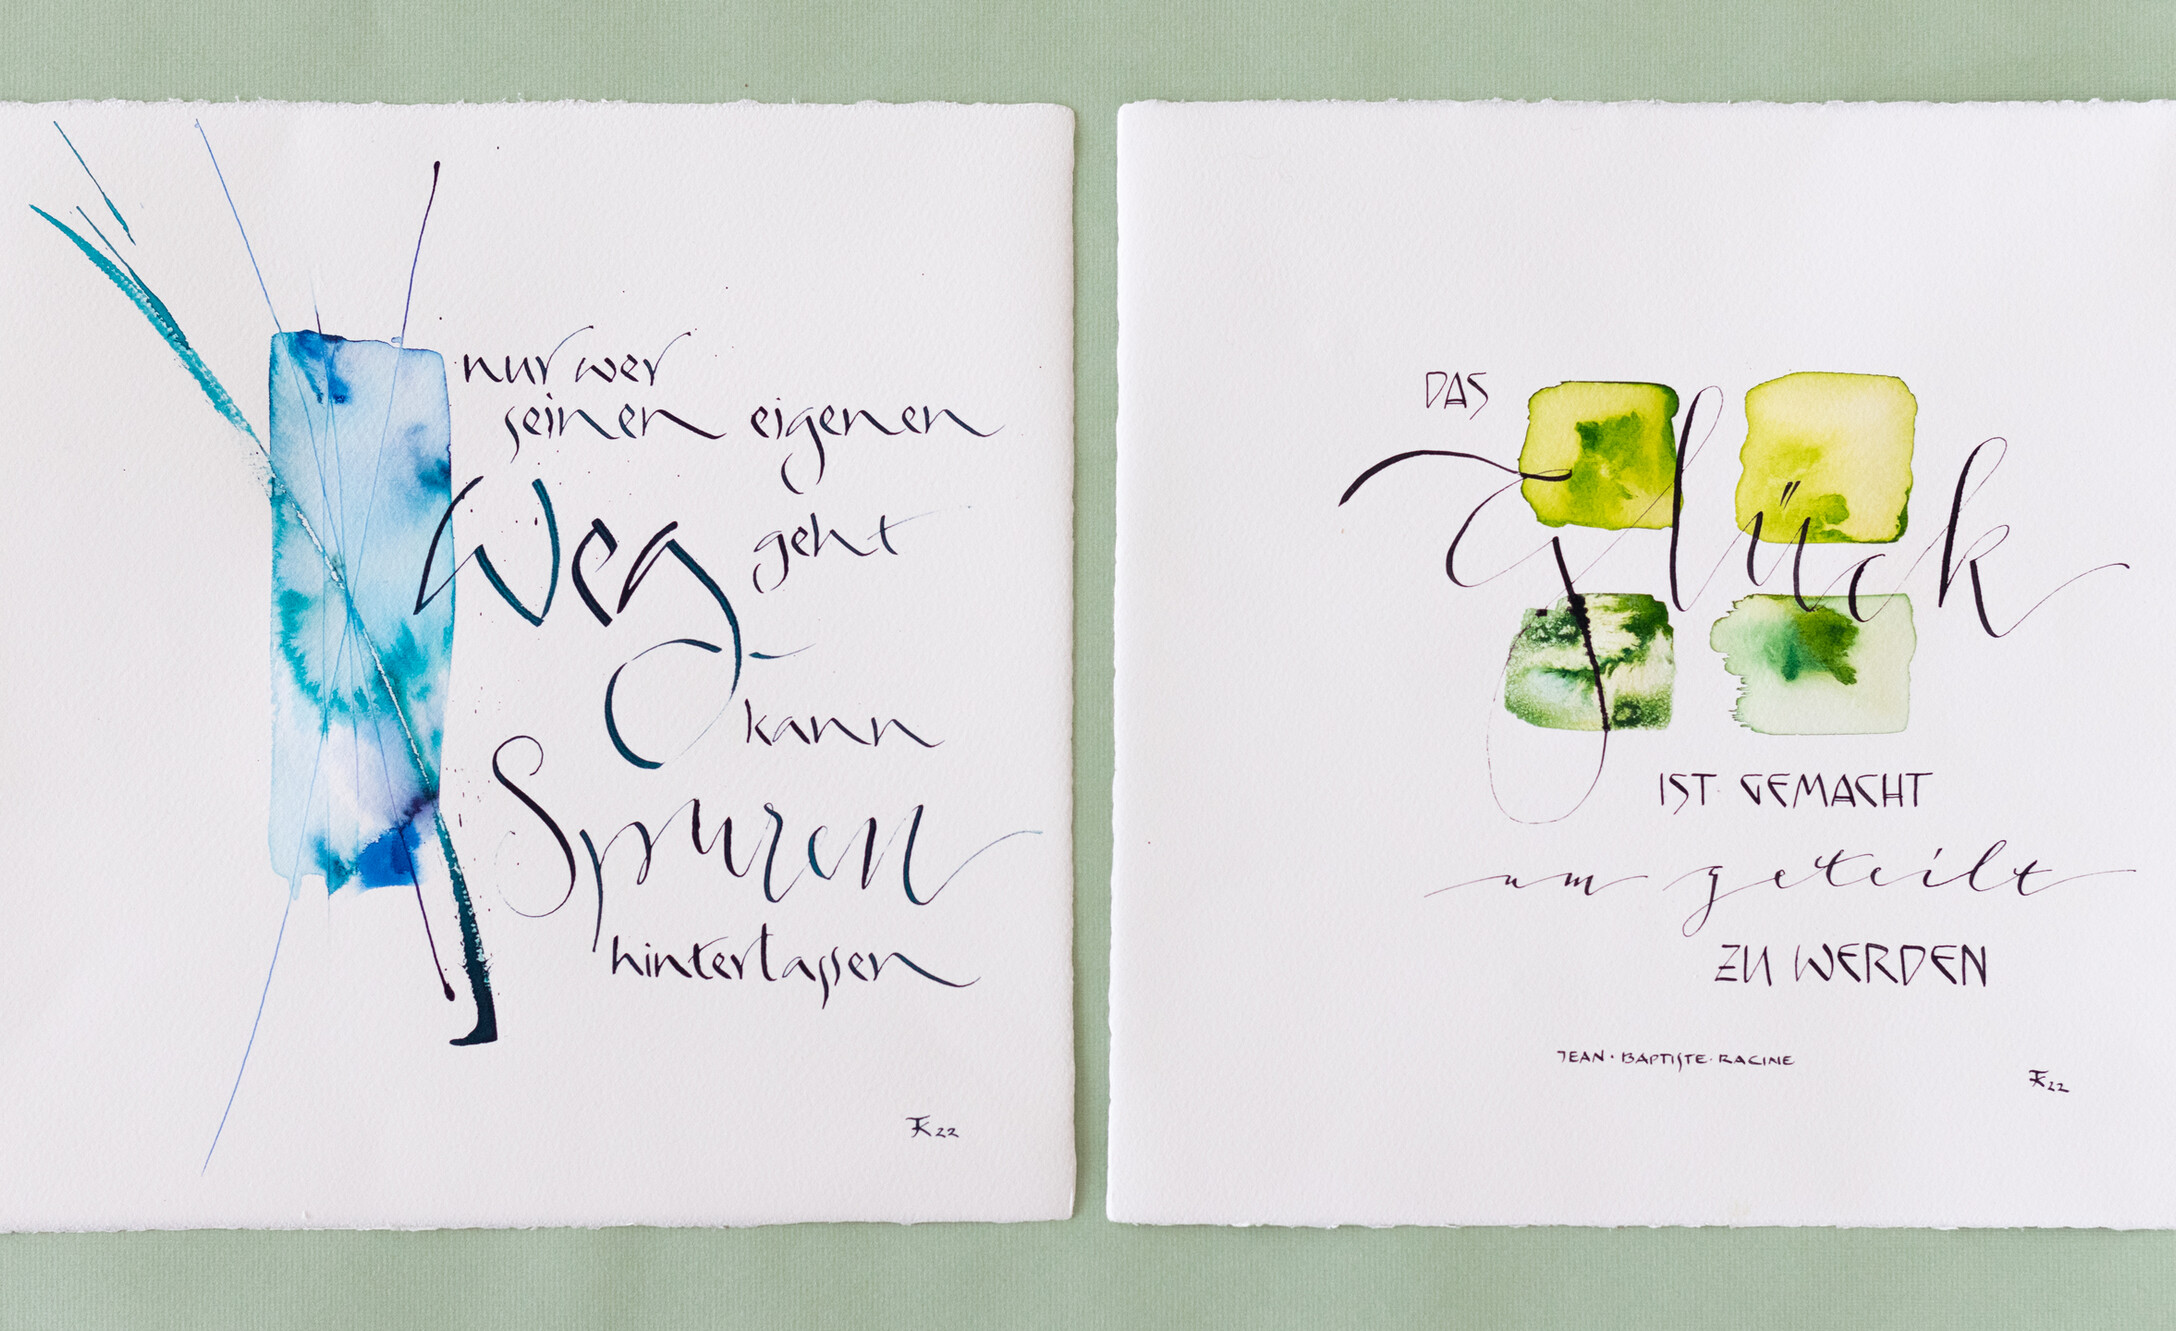 nur wer
seinen eigenen
Weg geht
kann
Spuren
hinterlassen
TK 22
DAS
Glück
IST GEMACHT
um geteilt
ZU WERDEN
JEAN·BAPTISTE·RACINE
TK 22